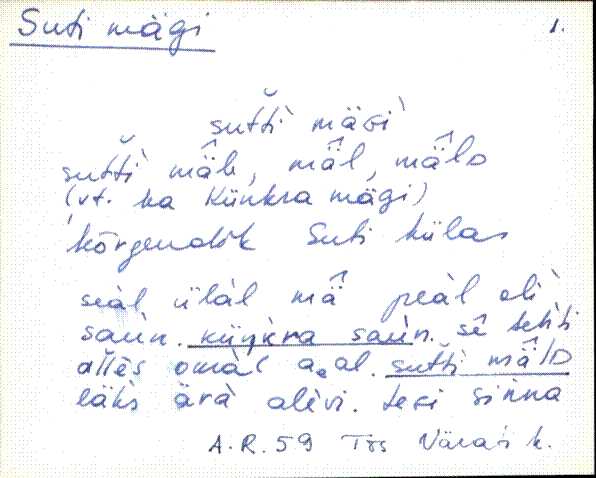 Suti mägi 1.
sutťi mäGi
sutťi mäk, mäl, mälD
(vt. ka Künkra mägi)
kõrgendik Suti külas
seàl ülàl mâ peàl oli
saùn. küŋkra saùn. sê tehti
alles omàl aeal. sutťi mälD
läks ärà alèvi. teGi sinna
A.R. 59 Tõs Väraši k.